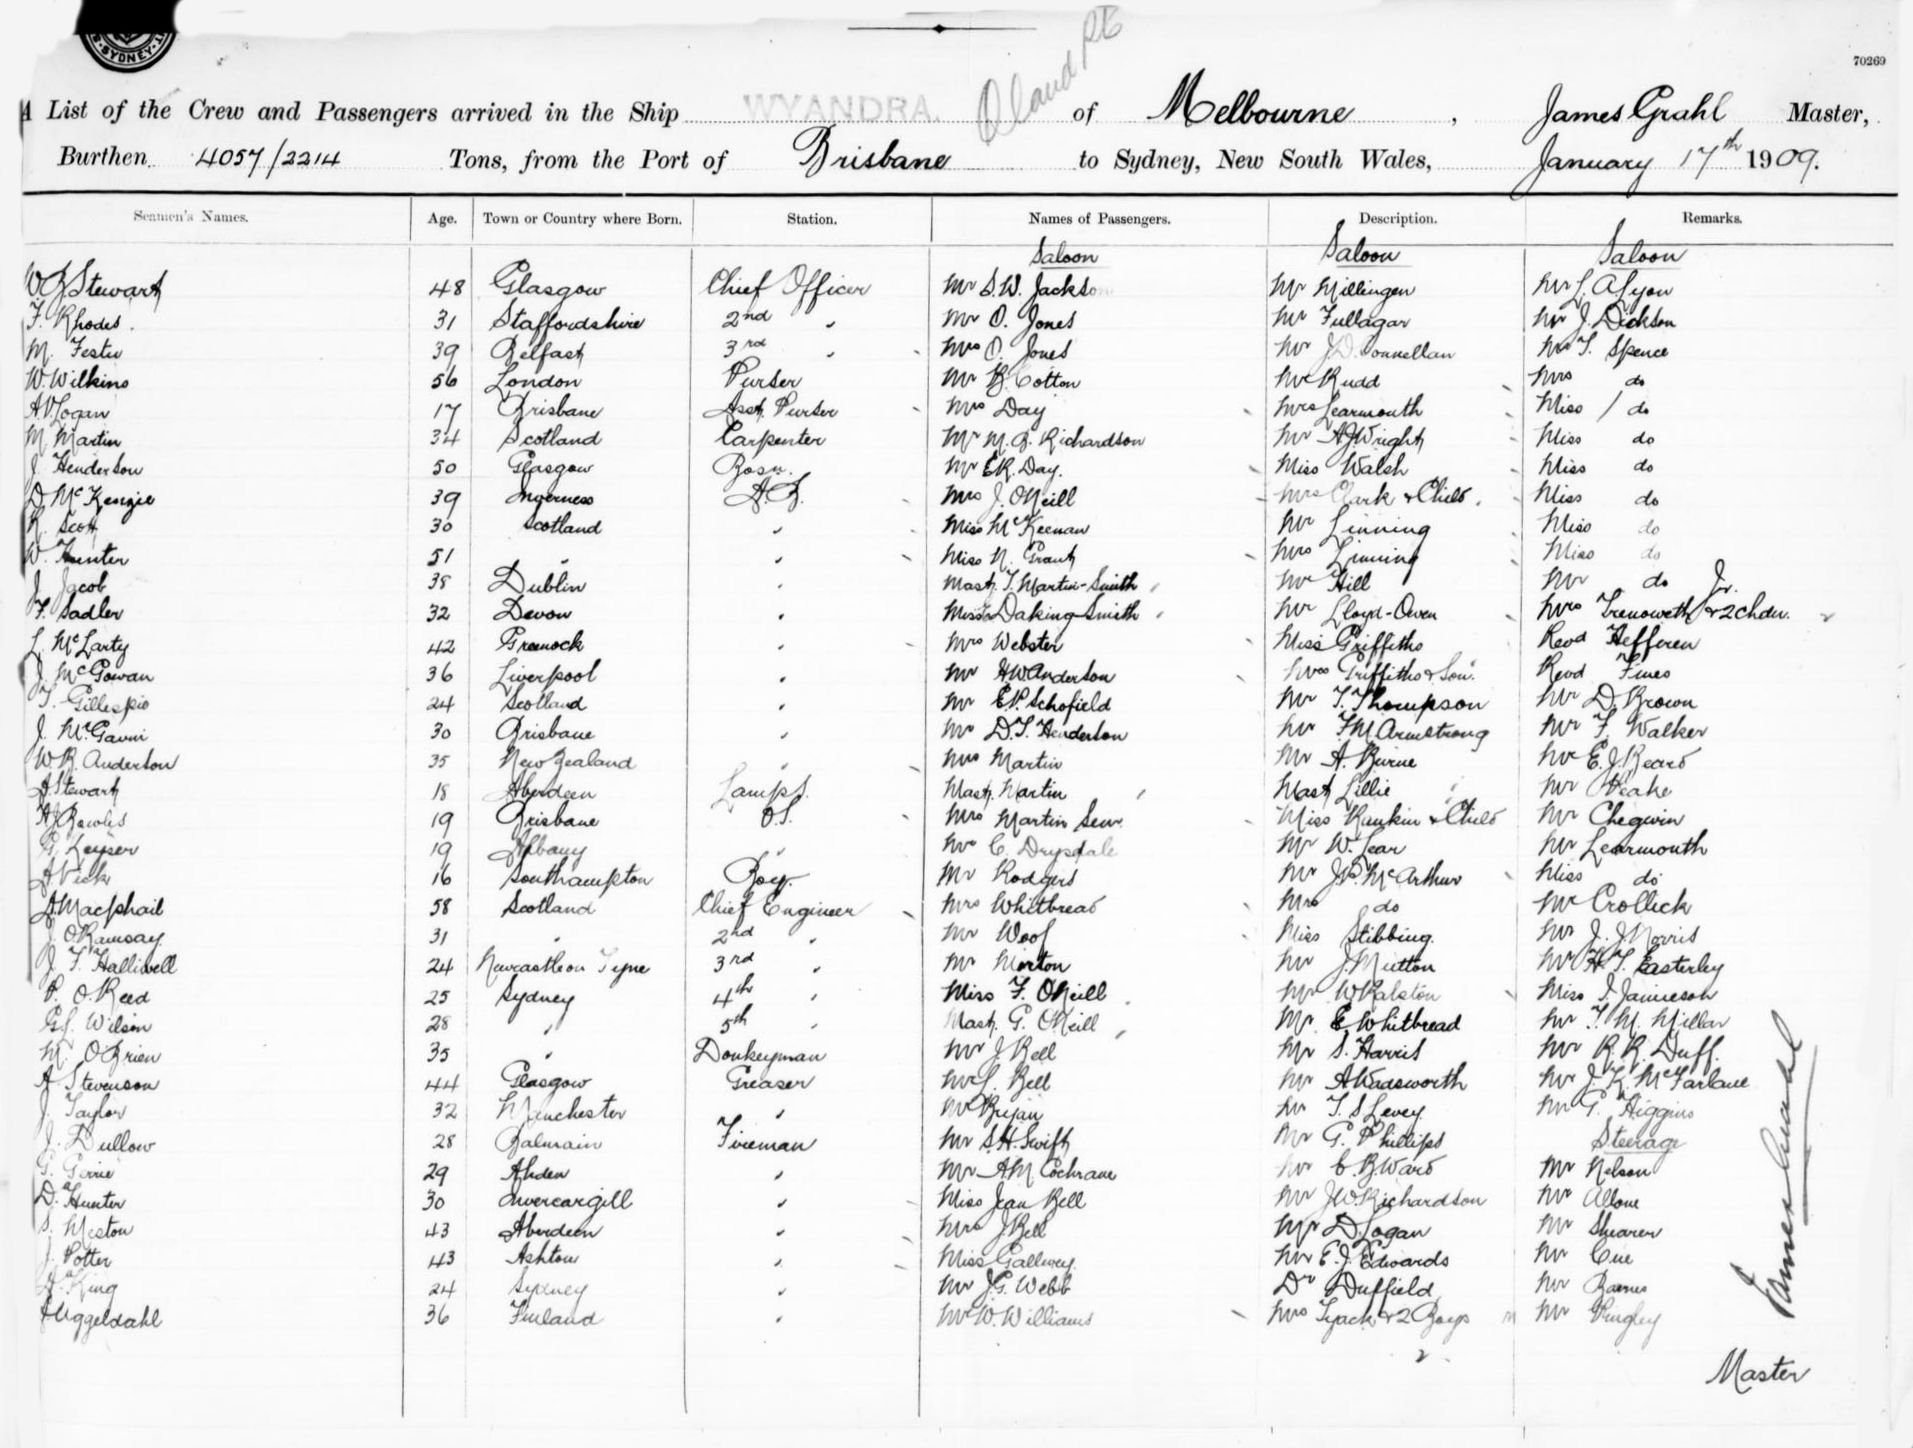 SYDNEY
Oland Pt
70269
A List of the Crew and Passengers arrived in the Ship WYANDRA. of Melbourne, James Grahl Master,
Burthen 4057/2214 Tons, from the Port of Brisbane to Sydney, New South Wales, January 17th 1909.
Seamen's Names. Age. Town or Country where Born. Station. Names of Passengers. Description. Remarks.
Saloon Saloon Saloon
W B Stewart 48 Glasgow Chief Officer Mr S.W. Jackson Mr Millingen Mr L. A Lyon
F. Rhodes. 31 Staffordshire 2nd " Mr O. Jones Mr Fullagar Mr J. Dickson
M. Festu 39 Belfast 3rd " Mrs O. Jones Mr J.D. Connellan Mr T. Spence
W. Wilkins 56 London Purser Mr B. Cotton Mr Rudd Mrs do
A V Logan 17 Brisbane Asst. Purser Mrs Day Mrs Learmouth Miss / do
M. Martin 34 Scotland Carpenter Mr M. B. Richardson Mr A J Wright Miss do
J. Henderson 50 Glasgow Bosn. Mr E R. Day. Miss Walsh Miss do
D. McKenzie 39 Inverness A.B. Mrs J. O'Neill Mrs Clark & Child. Miss do
R. Scott 30 Scotland " Miss McKeenan Mr Linning Miss do
W. Hunter 51 " " Miss N. Grant Mrs Linning Miss do
J. Jacob 38 Dublin " Mast. T. Martin-Smith Mr Hill Mr do Jr.
F. Sadler 32 Devon " Miss Daking-Smith Mr Lloyd-Owen Mrs Trenoweth & 2 chdn.
L. McLarty 42 Greenock " Mrs Webster Miss Griffiths Revd Hefferen
J. McGowan 36 Liverpool " Mr H W Anderson Mrs Griffiths & Son. Revd Fines
T. Gillespie 24 Scotland " Mr E.P. Schofield Mr T. Thompson Mr D. Brown
J. McGavin 30 Brisbane " Mr D.T. Henderson Mr F.M. Armstrong Mr F. Walker
W R. Anderson 35 New Zealand " Mrs Martin Mr A. Birne Mr E. J. Beard
A Stewart 18 Aberdeen Lamps. Mast. Martin Mast Lillie Mr Peake
A J Rawles 19 Brisbane O.S. Mrs Martin Senr. Miss Rankin & Child Mr Chegwin
G. Keyser 19 Albany " Mr C. Drysdale Mr W. Lear Mr Learmouth
A Vick 16 Southampton Boy. Mr Rodgers Mr J P. McArthur Miss do
D. Macphail 58 Scotland Chief Engineer Mrs Whitbread Mrs do Mr Crollick
J. O Ramsay. 31 " 2nd " Mr Woof Miss Stibbing. Mr J. J. Norris
J. T. Halliwell 24 Newcastle on Tyne 3rd " Mr Morton Mr J. Mutton Mr H T. Easterley
P. O. Reed 25 Sydney 4th " Miss F. O'Neill Mr W Ralston Miss I. Jamieson
G L. Wilson 28 " 5th " Mast. G. O'Neill Mr. E. Whitbread Mr T. M. Millar
M. O'Brien 35 " Donkeyman Mr J. Bell Mr S. Harris Mr R. R. Duff.
A. Stevenson 44 Glasgow Greaser Mr L. Bell Mr A Wadsworth Mr J. K. McFarlane
J. Taylor 32 Manchester " Mr Bryan Mr T. S Levey Mr G. Higgins
J. Dullow 28 Balmain Fireman Mr S.H. Swift Mr G. Phillips Steerage
G. Girrie 29 " Mr A M Cochrane Mr C. B Ward Mr Nelson
D. Hunter 30 Invercargill " Miss Jean Bell Mr J W Richardson Mr Allone
S. Meston 43 Aberdeen " Mrs J. Bell Mr D. Logan Mr Shearer
J. Potter 43 Ashton " Miss Gallwey. Mr E. J. Edwards Mr Cue
A. King 24 Sydney " Mr J G. Webb Dr Duffield Mr Barnes
J Uggeldahl 36 Finland " Mr W. Williams Mrs Tyack & 2 Boys Mr Pingley
2
James Grahl
Master